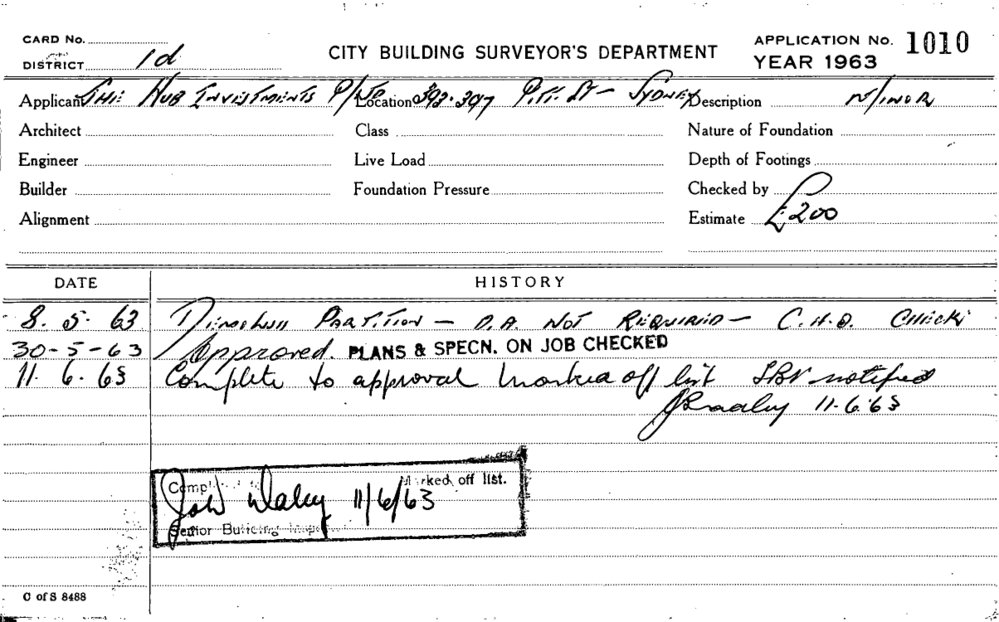 CARD No.
DISTRICT 1d
CITY BUILDING SURVEYOR'S DEPARTMENT
APPLICATION No. 1010
YEAR 1963
Applicant THE HUB INVESTMENTS P/LTD Location 393-397 PITT ST - SYDNEY Description MINOR
Architect Class Nature of Foundation
Engineer Live Load Depth of Footings
Builder Foundation Pressure Checked by
Alignment Estimate £200
DATE HISTORY
8. 5. 63 PARTITION - D.A. NOT REQUIRED - C.H.O. CHECK
30-5-63 Approved. PLANS & SPECN. ON JOB CHECKED
11. 6. 63 Complete to approval marked off list notified
11.6.63
Marked off list.
11/6/63
Senior Building
C of S 8488